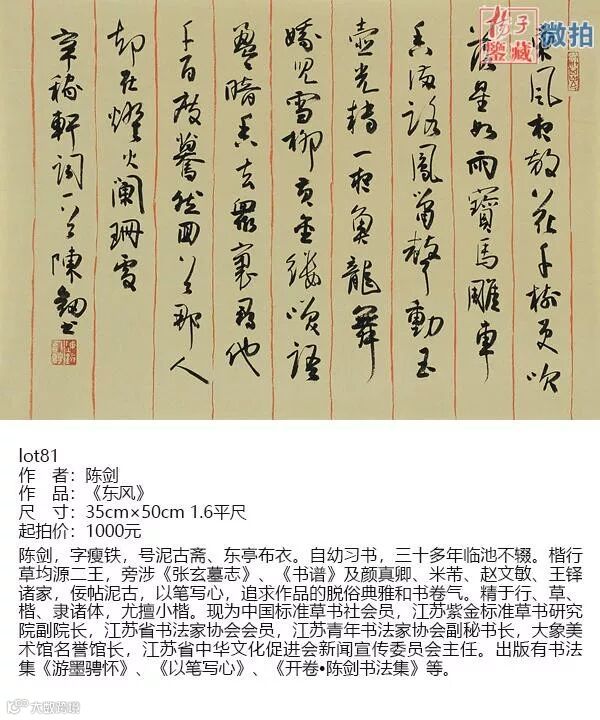 楊子
鑒藏
微拍
東風夜放花千樹更吹
落星如雨寶馬雕車
香滿路鳳簫聲動玉
壺光轉一夜魚龍舞
蛾兒雪柳黃金縷笑語
盈盈暗香去眾裏尋他
千百度驀然回首那人
却在燈火闌珊處
辛稼軒詞一首陳劍书
lot81
作 者：陈剑
作 品：《东风》
尺 寸：35cm×50cm 1.6平尺
起拍价：1000元
陈剑，字瘦铁，号泥古斋、东亭布衣。自幼习书，三十多年临池不辍。楷行
草均源二王，旁涉《张玄墓志》、《书谱》及颜真卿、米芾、赵文敏、王铎
诸家，佞帖泥古，以笔写心，追求作品的脱俗典雅和书卷气。精于行、草、
楷、隶诸体，尤擅小楷。现为中国标准草书社会员，江苏紫金标准草书研究
院副院长，江苏省书法家协会会员，江苏青年书法家协会副秘书长，大象美
术馆名誉馆长，江苏省中华文化促进会新闻宣传委员会主任。出版有书法
集《游墨骋怀》、《以笔写心》、《开卷•陈剑书法集》等。
大数跨境